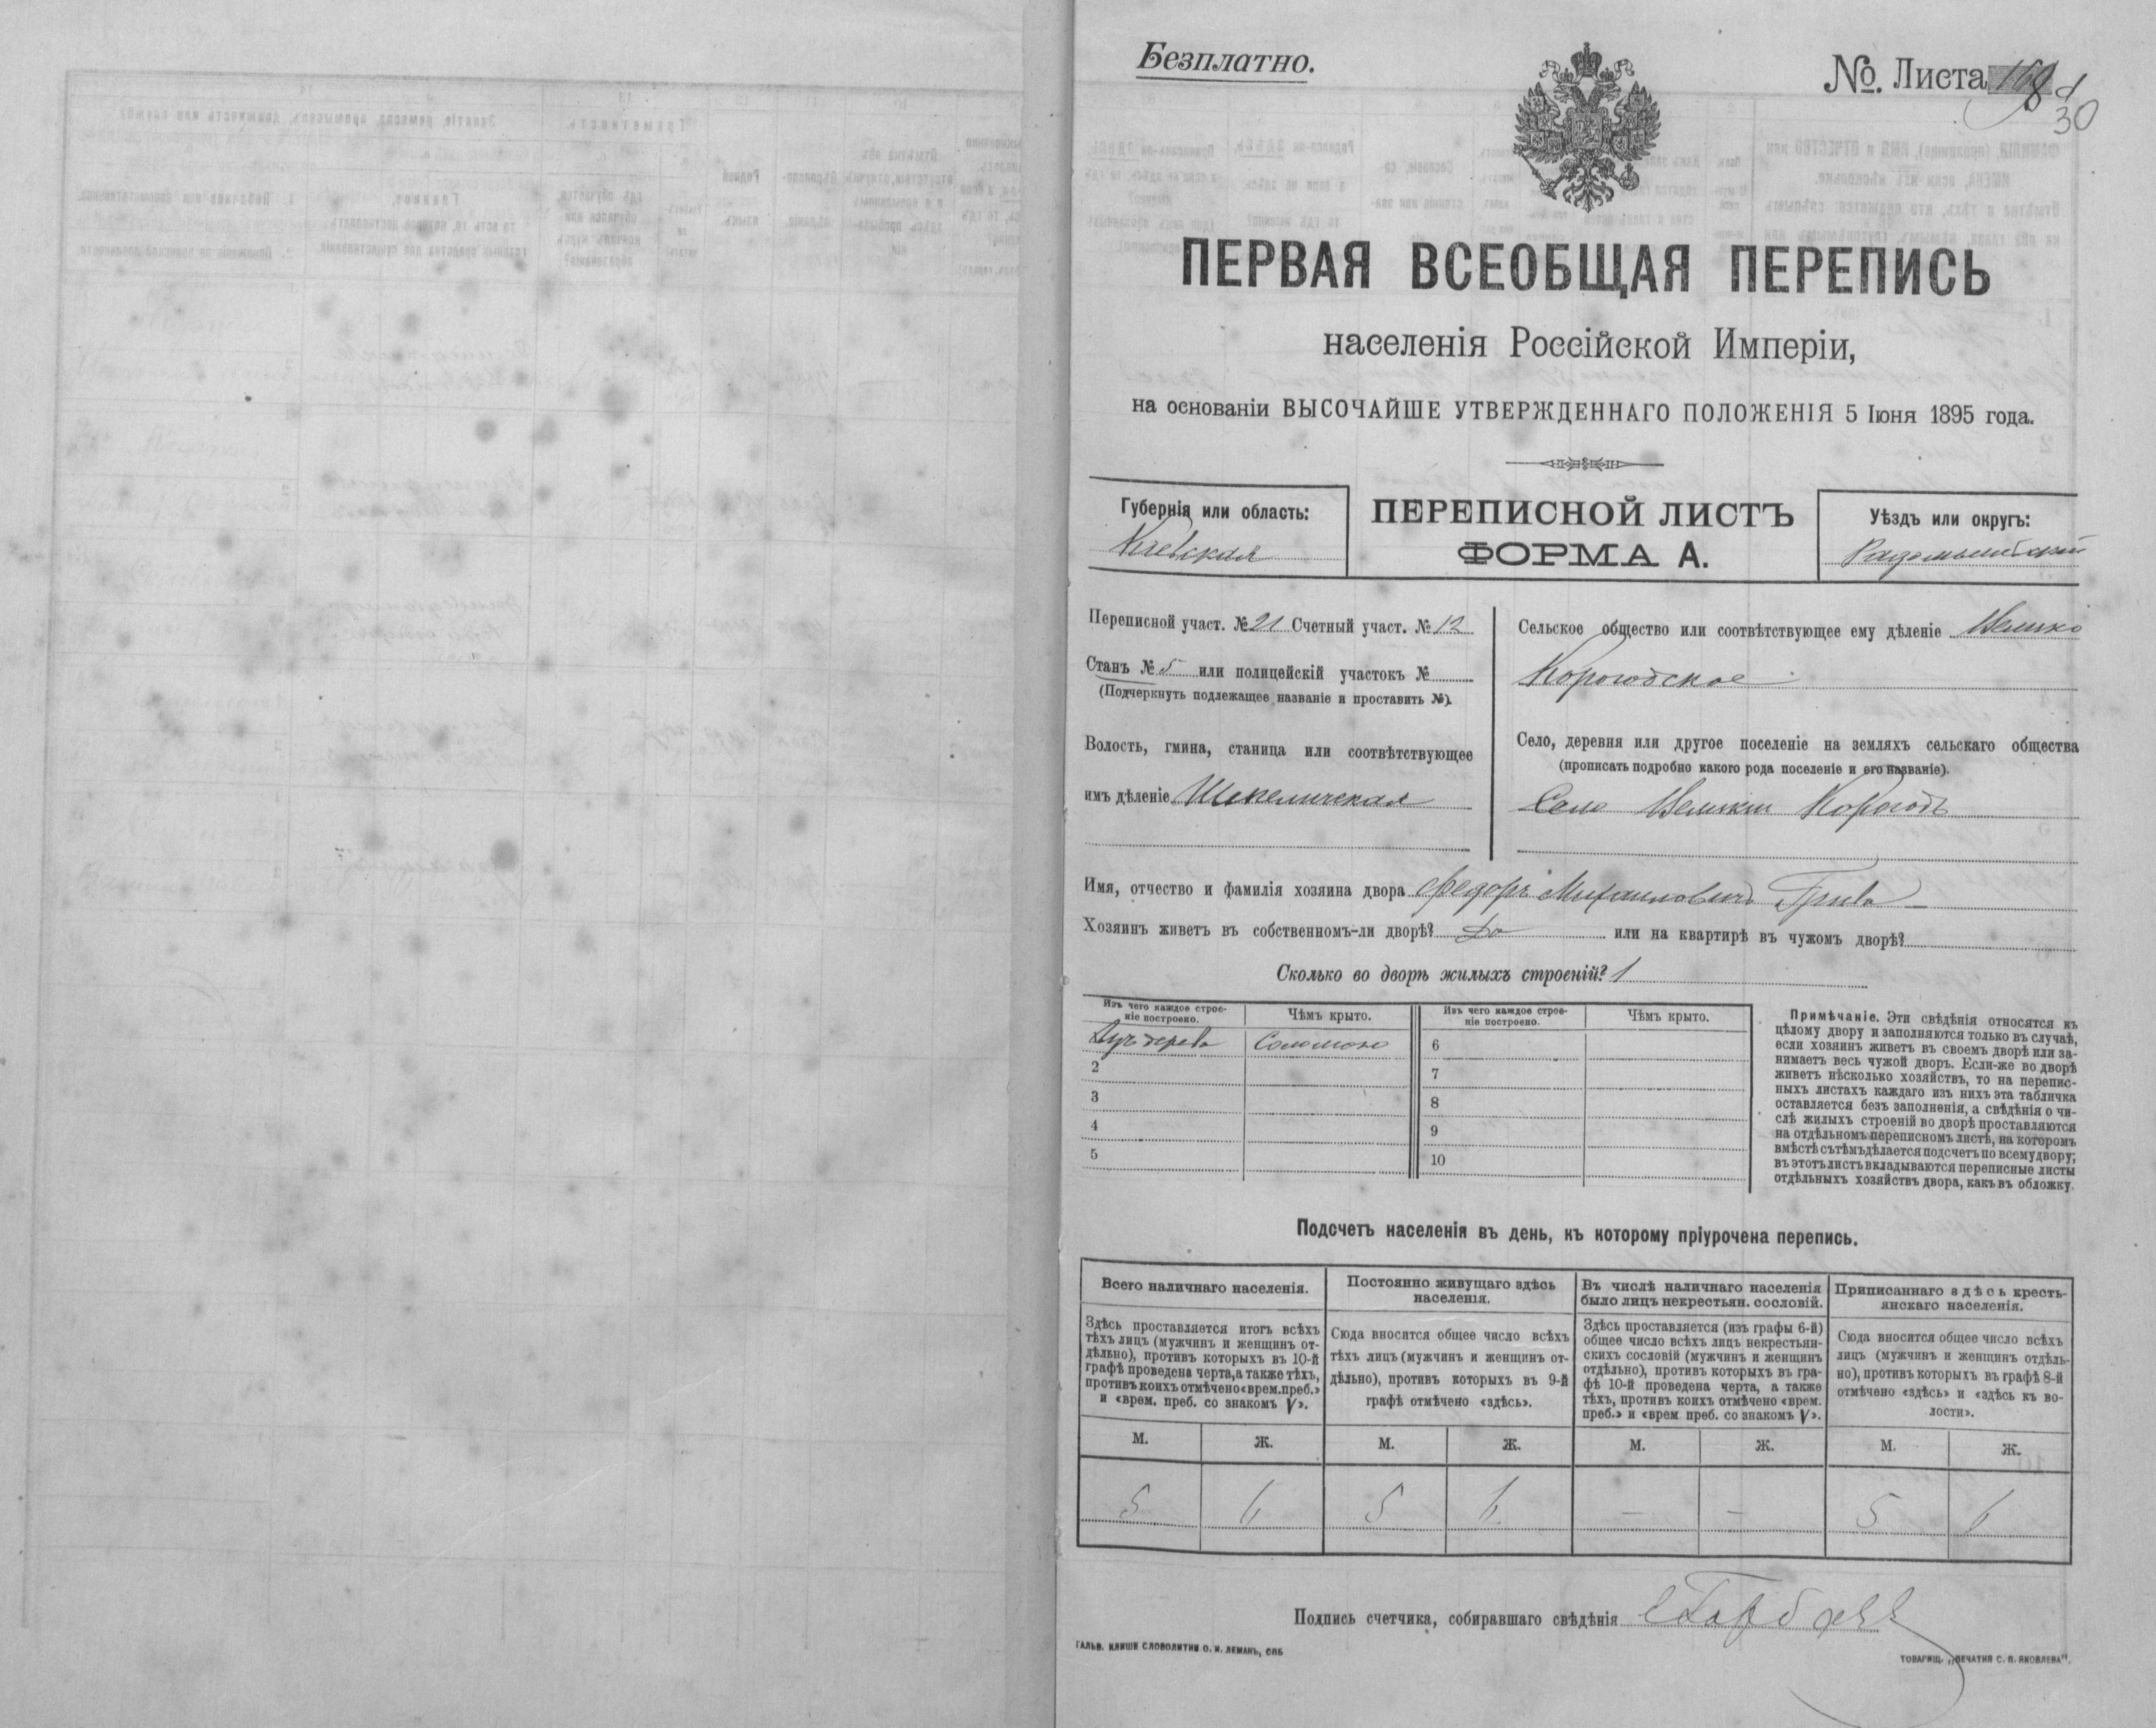 Безплатно.
№. Листа
30
ПЕРВАЯ ВСЕОБЩАЯ ПЕРЕПИСЬ
населенія Россійской Имперіи,
на основаніи ВЫСОЧАЙШЕ УТВЕРЖДЕННАГО ПОЛОЖЕНІЯ 5 Іюня 1895 года.
Губернія или область:
Кіевская
ПЕРЕПИСНОЙ ЛИСТЪ
ФОРМА А.
Уѣздъ или округъ:
Радомысльскій
Переписной участ. № 21 Счетный участ. № 12
Станъ № 5 или полицейскій участокъ №
(Подчеркнуть подлежащее названіе и проставить №).
Волость, гмина, станица или соотвѣтствующее
имъ дѣленіе Шепеличская
Сельское общество или соотвѣтствующее ему дѣленіе Велико
Корогодское
Село, деревня или другое поселеніе на земляхъ сельскаго общества
(прописать подробно какого рода поселеніе и его названіе).
Село Великій Корогодъ
Имя, отчество и фамилія хозяина двора Федоръ Михаиловичъ Грива
Хозяинъ живетъ въ собственномъ-ли дворѣ? Да или на квартирѣ въ чужомъ дворѣ?
Сколько во дворѣ жилыхъ строеній? 1
Изъ чего каждое строе-
ніе построено.
Чѣмъ крыто.
Изъ чего каждое строе-
ніе построено.
Чѣмъ крыто.
Изъ дерева Соломою 6
2 7
3 8
4 9
5 10
Примѣчаніе. Эти свѣдѣнія относятся къ
цѣлому двору и заполняются только въ случаѣ,
если хозяинъ живетъ въ своемъ дворѣ или за-
нимаетъ весь чужой дворъ. Если-же во дворѣ
живетъ нѣсколько хозяйствъ, то на перепис-
ныхъ листахъ каждаго изъ нихъ эта табличка
оставляется безъ заполненія, а свѣдѣнія о чи-
слѣ жилыхъ строеній во дворѣ проставляются
на отдѣльномъ переписномъ листѣ, на которомъ
вмѣстѣ съ тѣмъ дѣлается подсчетъ по всему двору;
въ этотъ листъ вкладываются переписные листы
отдѣльныхъ хозяйствъ двора, какъ въ обложку.
Подсчетъ населенія въ день, къ которому пріурочена перепись.
Всего наличнаго населенія.
Здѣсь проставляется итогъ всѣхъ
тѣхъ лицъ (мужчинъ и женщинъ от-
дѣльно), противъ которыхъ въ 10-й
графѣ проведена черта, а также тѣхъ,
противъ коихъ отмѣчено «врем. преб.»
и «врем. преб. со знакомъ V».
Постоянно живущаго здѣсь
населенія.
Сюда вносится общее число всѣхъ
тѣхъ лицъ (мужчинъ и женщинъ от-
дѣльно), противъ которыхъ въ 9-й
графѣ отмѣчено «здѣсь».
Въ числѣ наличнаго населенія
было лицъ некрестьян. сословій.
Здѣсь проставляется (изъ графы 6-й)
общее число всѣхъ лицъ некрестьян-
скихъ сословій (мужчинъ и женщинъ
отдѣльно), противъ которыхъ въ гра-
фѣ 10-й проведена черта, а также
тѣхъ, противъ коихъ отмѣчено «врем.
преб.» и «врем преб. со знакомъ V».
Приписаннаго здѣсь кресть-
янскаго населенія.
Сюда вносится общее число всѣхъ
лицъ (мужчинъ и женщинъ отдѣль-
но), противъ которыхъ въ графѣ 8-й
отмѣчено «здѣсь» и «здѣсь къ во-
лости».
М. Ж. М. Ж. М. Ж. М. Ж.
5 6 5 6 — — 5 6
Подпись счетчика, собиравшаго свѣдѣнія
ГАЛЬВ. КЛИШЕ СЛОВОЛИТНИ О. И. ЛЕМАНЪ, СПБ
ТОВАРИЩ. „ПЕЧАТНЯ С. П. ЯКОВЛЕВА".